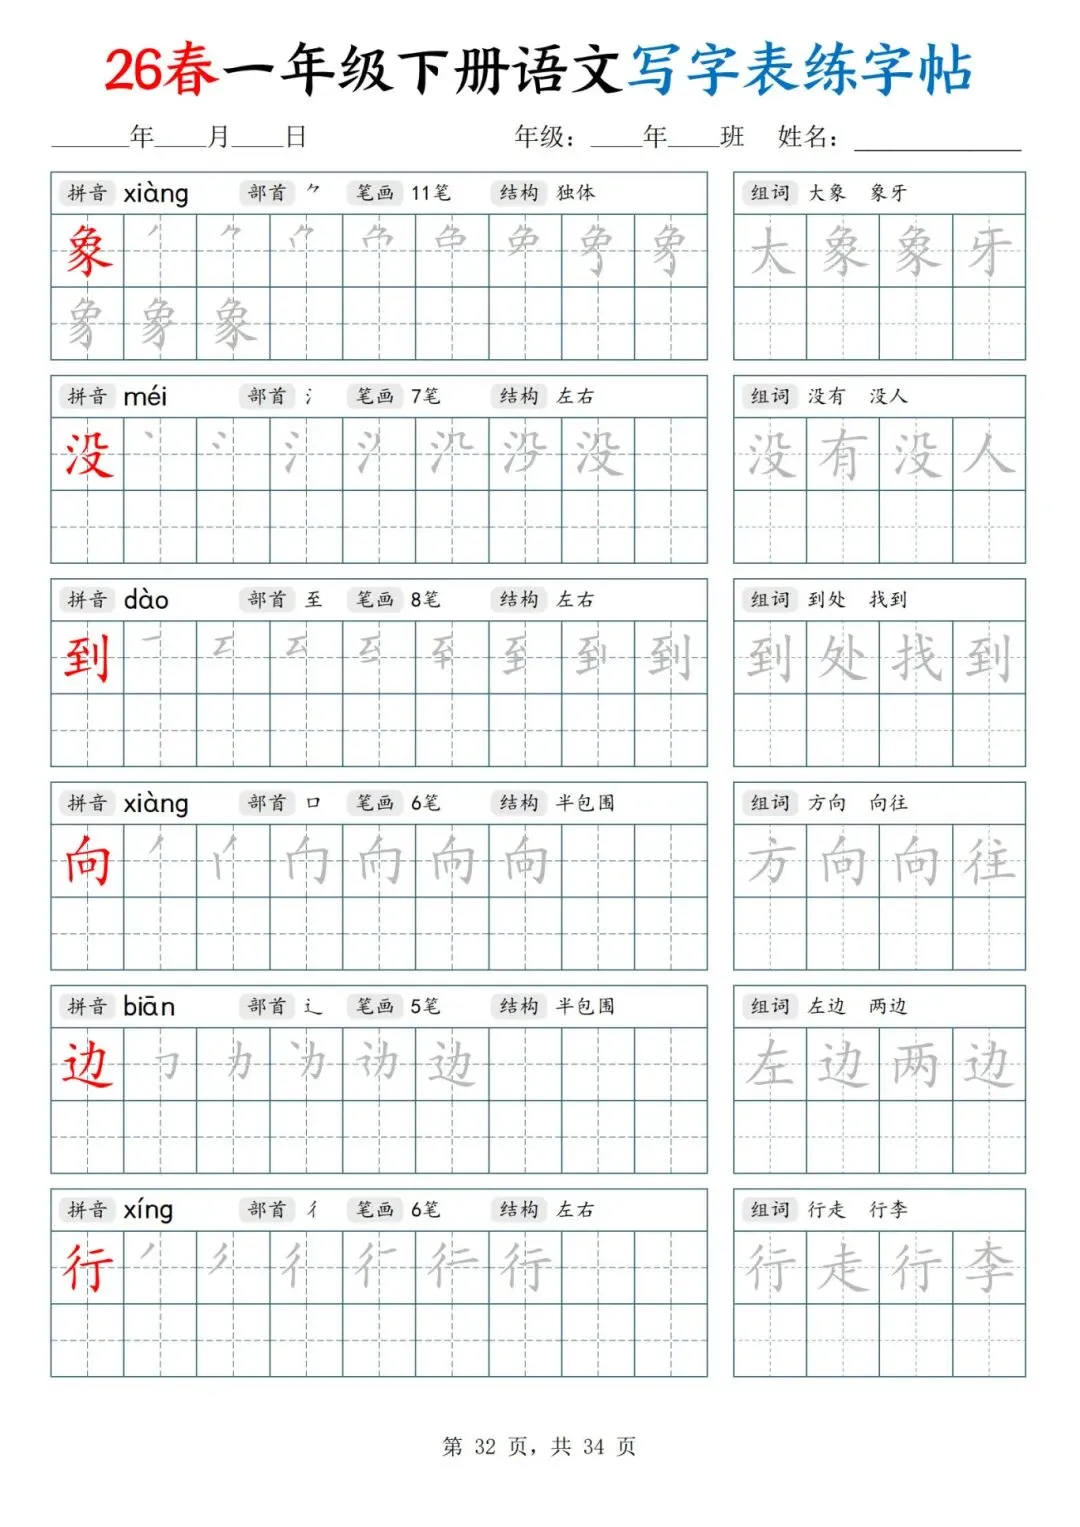 26春一年级下册语文写字表练字帖
____年____月____日 年级：____年____班 姓名：____________
拼音 xiàng 部首 ⺈ 笔画 11笔 结构 独体 组词 大象 象牙
象 大象象牙
象
拼音 méi 部首 氵 笔画 7笔 结构 左右 组词 没有 没人
没 没 没有没人
拼音 dào 部首 至 笔画 8笔 结构 左右 组词 到处 找到
到 到 到处找到
拼音 xiàng 部首 口 笔画 6笔 结构 半包围 组词 方向 向往
向 向 方向向往
拼音 biān 部首 辶 笔画 5笔 结构 半包围 组词 左边 两边
边 边 左边两边
拼音 xíng 部首 彳 笔画 6笔 结构 左右 组词 行走 行李
行 行 行走行李
第 32 页，共 34 页